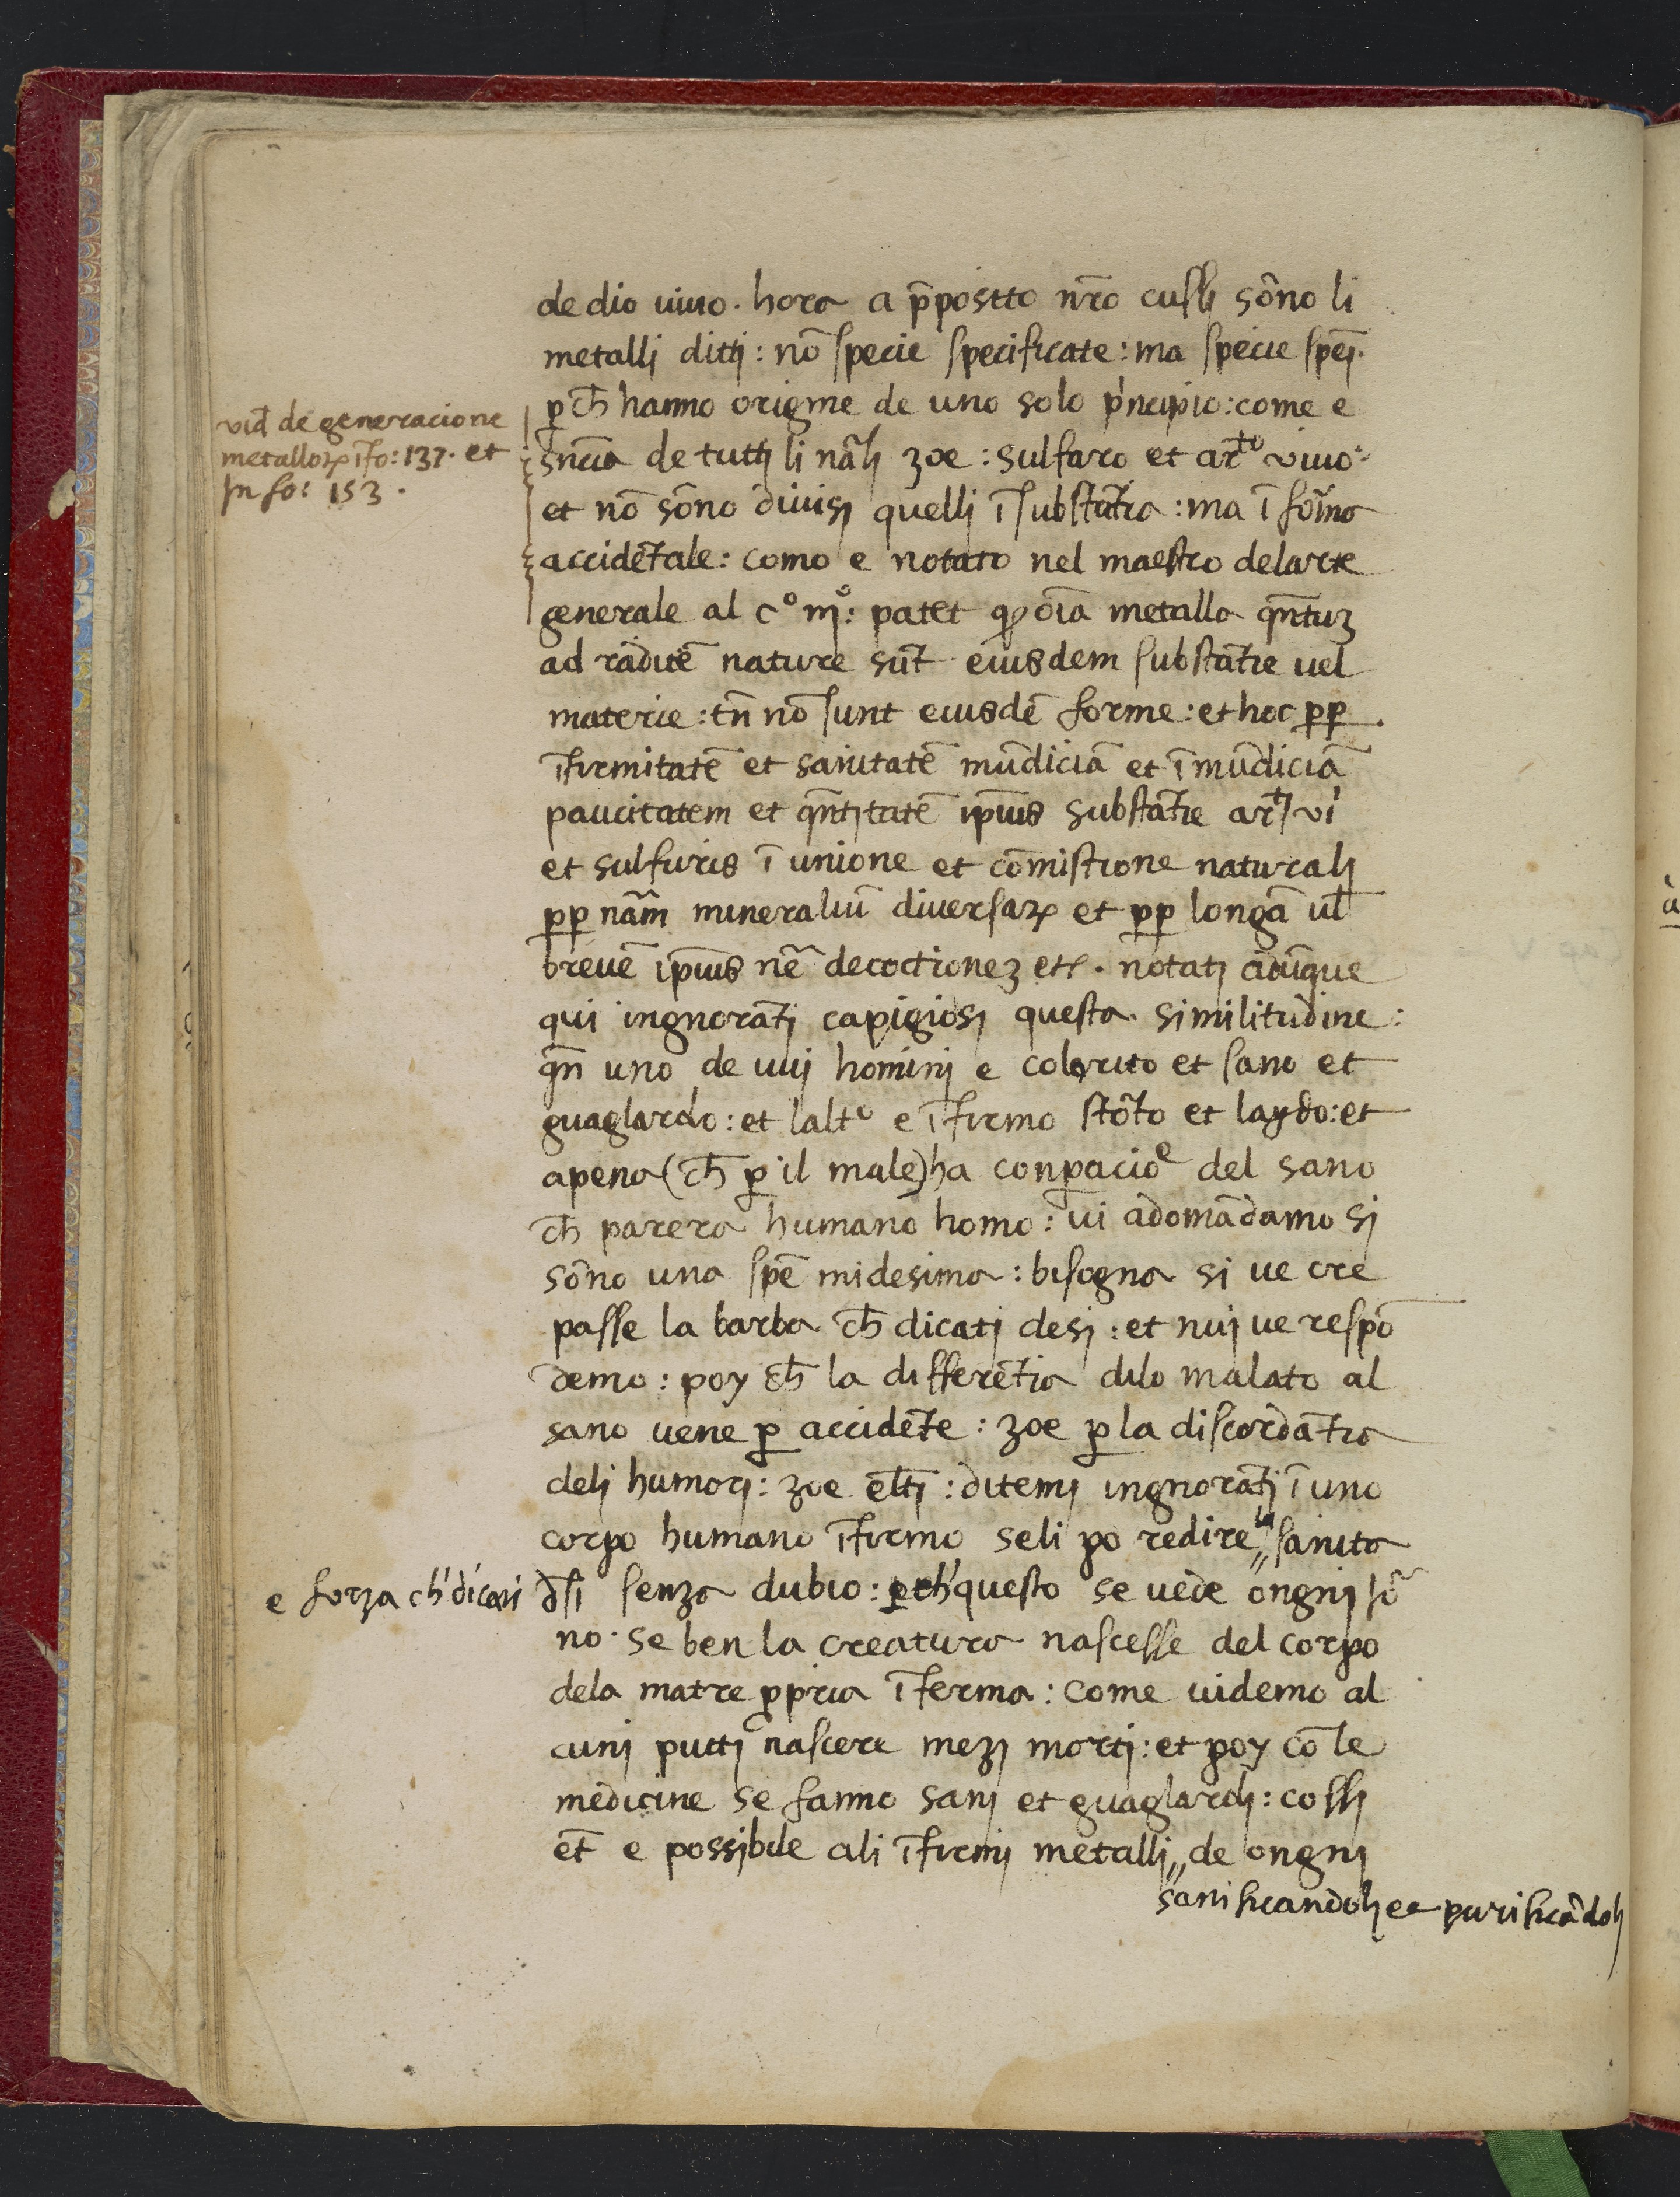 de dio uiuo. hora a p̄postto nr̄o cussi sōno li
metalli ditti: nō specie specificate: ma specie speī.
p̲ ch̄ hanno origine de uno solo p'ncipio: come e
vid̄ de generacione
metalloꝝ ī fo: 137. et
in fo: 153.
sn̄cia de tutti li nālj zoe: sulfaro et arto viuo:
et nō sōno diuisi quelli ī substātia: ma ī fōrma
accidētale: como e notato nel maestro delarte
generale al co mo: patet ꝙ oīa metalla qn̄tuꝫ
ad radicē nature sūt eiusdem substātie uel
materie: tn̄ nō sunt eiusdē forme: et hoc ꝑꝑ
īfirmitatē et sanitatē mūdiciā et ī mūdiciā
paucitatem et qn̄titatē ip̄ius substātie artj vi
et sulfuris ī unione et cōmistione naturalj
ꝑꝑ nām mineraliū diuersaꝝ et ꝑꝑ longā ul̄
breuē ip̄ius nē decoctioneꝫ etc. notatj adūque
qui ingnorātj capigiosj questa similitudine:
qn̄ uno de uuj hominj e colorito et sano et
guaglardo: et lalto e īfirmo stōto et laydo: et
apena (ch̄ ꝑ il male) ha conꝑacioe del sano
ch̄ parera humano homo: ui adomādamo si
sōno una spē midesima: bisogna si ue cre
passe la barba ch̄ dicatj desj: et nuj ue respō
demo: poy ch̄ la differētia dilo malato al
sano uene ꝑ accidēte: zoe ꝑ la discordātia
delj humorj: zoe el̄tj: ditemj ingnorātj ī uno
corpo humano īfirmo seli po redire la sanita
e forza ch' dicati d̄sī senza dubio: ꝑch' questo se uede ongnj iō
no. se ben la creatura nascesse del corpo
dela matre ꝓpria īferma: come uidemo al
cunj puttj nascere mezj mortj: et poy cō le
medicine se fanno sanj et guaglardj: cossj
et̄ e possibile ali īfirmj metallj de ongnj
sanificandolj et purificādolj